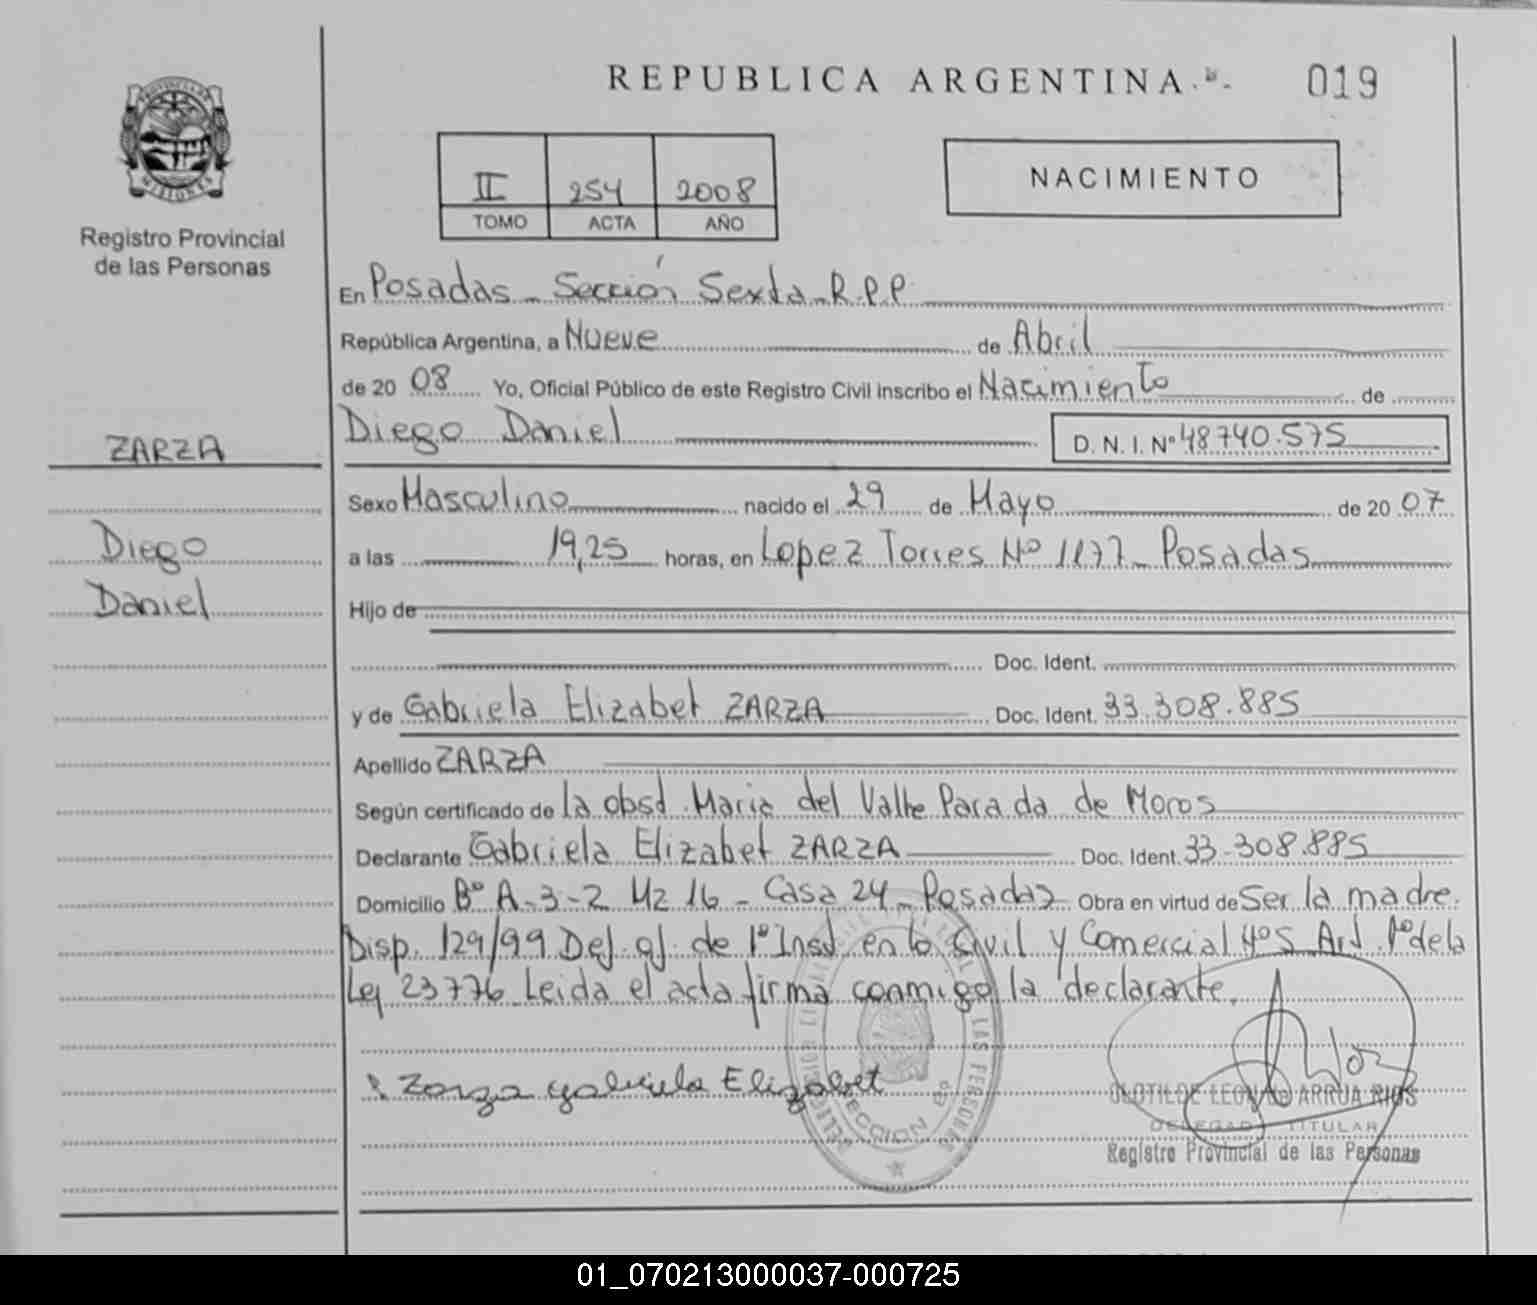 REPUBLICA ARGENTINA.-
019
PROVINCIA DE
MISIONES
Registro Provincial
de las Personas
II 254 2008
TOMO ACTA AÑO
NACIMIENTO
En Posadas - Sección Sexta R.P.P.
República Argentina, a Nueve de Abril
de 20 08 Yo, Oficial Público de este Registro Civil inscribo el Nacimiento de
Diego Daniel D. N. I. Nº 48740.575
ZARZA
Diego
Daniel
Sexo Masculino nacido el 29 de Mayo de 20 07
a las 19,25 horas, en Lopez Torres Nº 1177 - Posadas
Hijo de
Doc. Ident.
y de Gabriela Elizabet ZARZA Doc. Ident. 33.308.885
Apellido ZARZA
Según certificado de la obst. Maria del Valle Parada de Moros
Declarante Gabriela Elizabet ZARZA Doc. Ident. 33-308.885
Domicilio Bº A-3-2 Mz 16 - Casa 24 - Posadas Obra en virtud de Ser la madre.
Disp. 129/99 Def. of. de 1º Inst en lo Civil y Comercial Nº5 Art. 1º de la
Ley 23776 Leida el acta firma conmigo la declarante.
Zarza gabriela Elizabet
CLOTILDE LEON de ARRUA RIOS
DELEGADA TITULAR
Registro Provincial de las Personas
01_070213000037-000725